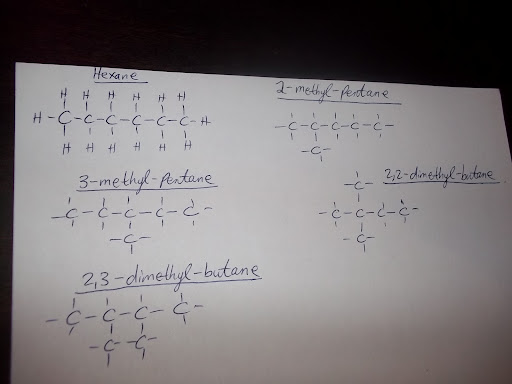 Hexane
H H H H H H
H-C-C-C-C-C-C-H
H H H H H H
2-methyl-Pentane
-C-C-C-C-C-
-C-
3-methyl-Pentane
-C-C-C-C-C-
-C-
2,2-dimethyl-butane
-C-
-C-C-C-C-
-C-
2,3-dimethyl-butane
-C-C-C-C-
-C-C-